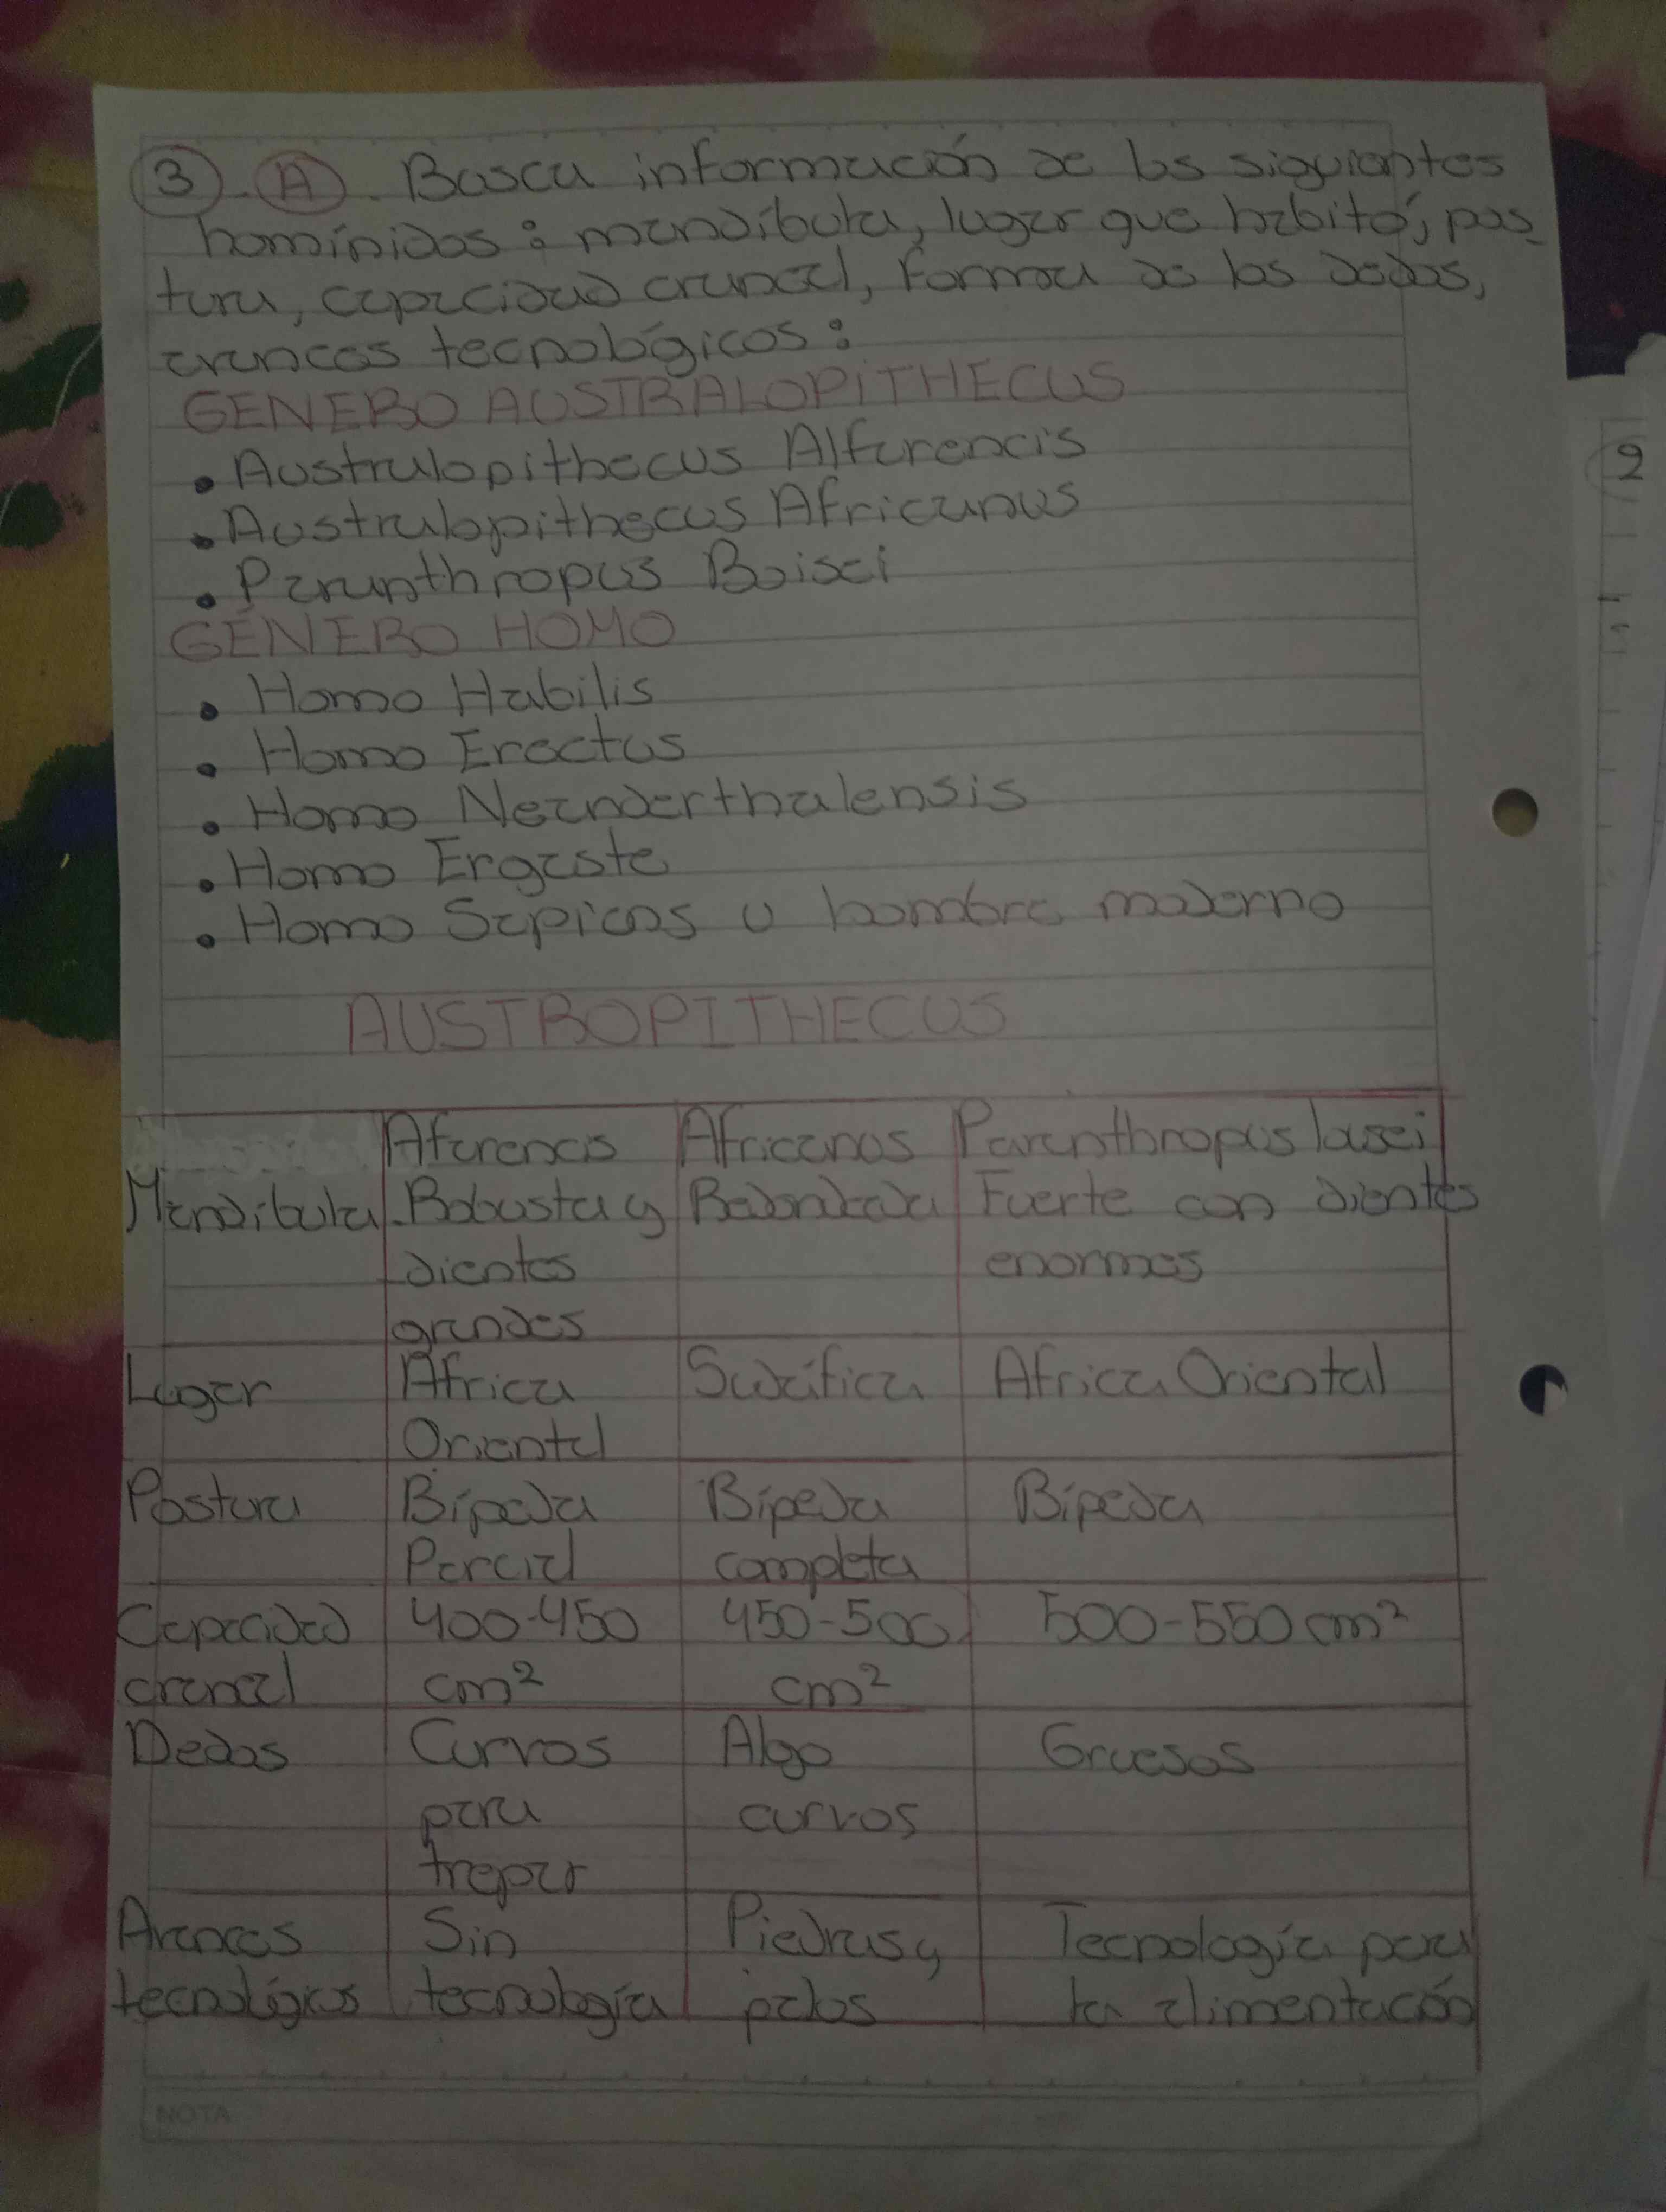 3. A. Busca información de los siguientes
homínidos: mandíbula, lugar que habitó, pos_
tura, capacidad craneal, forma de los dedos,
avances tecnológicos:
GENERO AUSTRALOPITHECUS
• Australopithecus Alfarencis
• Australopithecus Africanus
• Paranthropus Boisei
GÉNERO HOMO
• Homo Habilis
• Homo Erectus
• Homo Neanderthalensis
• Homo Ergaste
• Homo Sapiens u hombre moderno
AUSTROPITHECUS
Afarencis Africanos Paranthropus
Mandibula Robusta y dientes grandes Redondeada Fuerte con dientes enormes
Lugar Africa Oriental Sudáfrica Africa Oriental
Postura Bípeda Parcial Bípeda completa Bípeda
Capacidad craneal 400-450 cm² 450-500 cm² 500-550 cm²
Dedos Curvos para trepar Algo curvos Gruesos
Avances tecnológicos Sin tecnología Piedras y palos Tecnología para la alimentación
NOTA
2